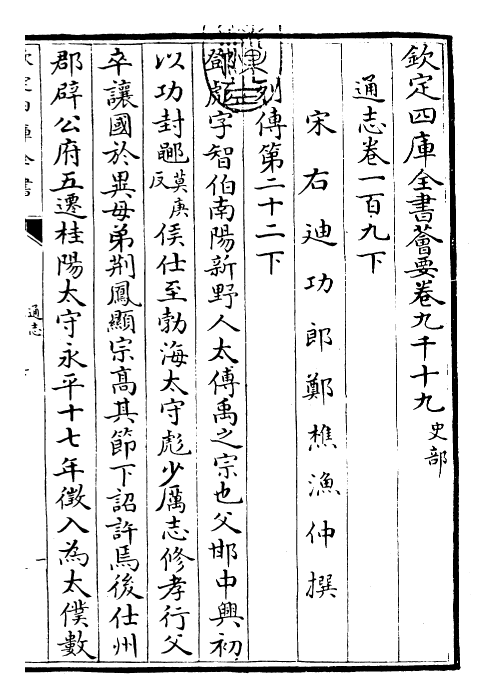 欽定四庫全書薈要卷九千十九 史部
通志卷一百九下
宋右迪功郎鄭樵漁仲撰
列傳第二十二下
鄧彪字智伯南陽新野人太傅禹之宗也父邯中興初
以功封鄳莫庚反侯仕至勃海太守彪少厲志修孝行父
卒讓國於異母弟荆鳳顯宗髙其節下詔許焉後仕州
郡辟公府五遷桂陽太守永平十七年徵入為太僕數
欽定四庫全書
通志
一